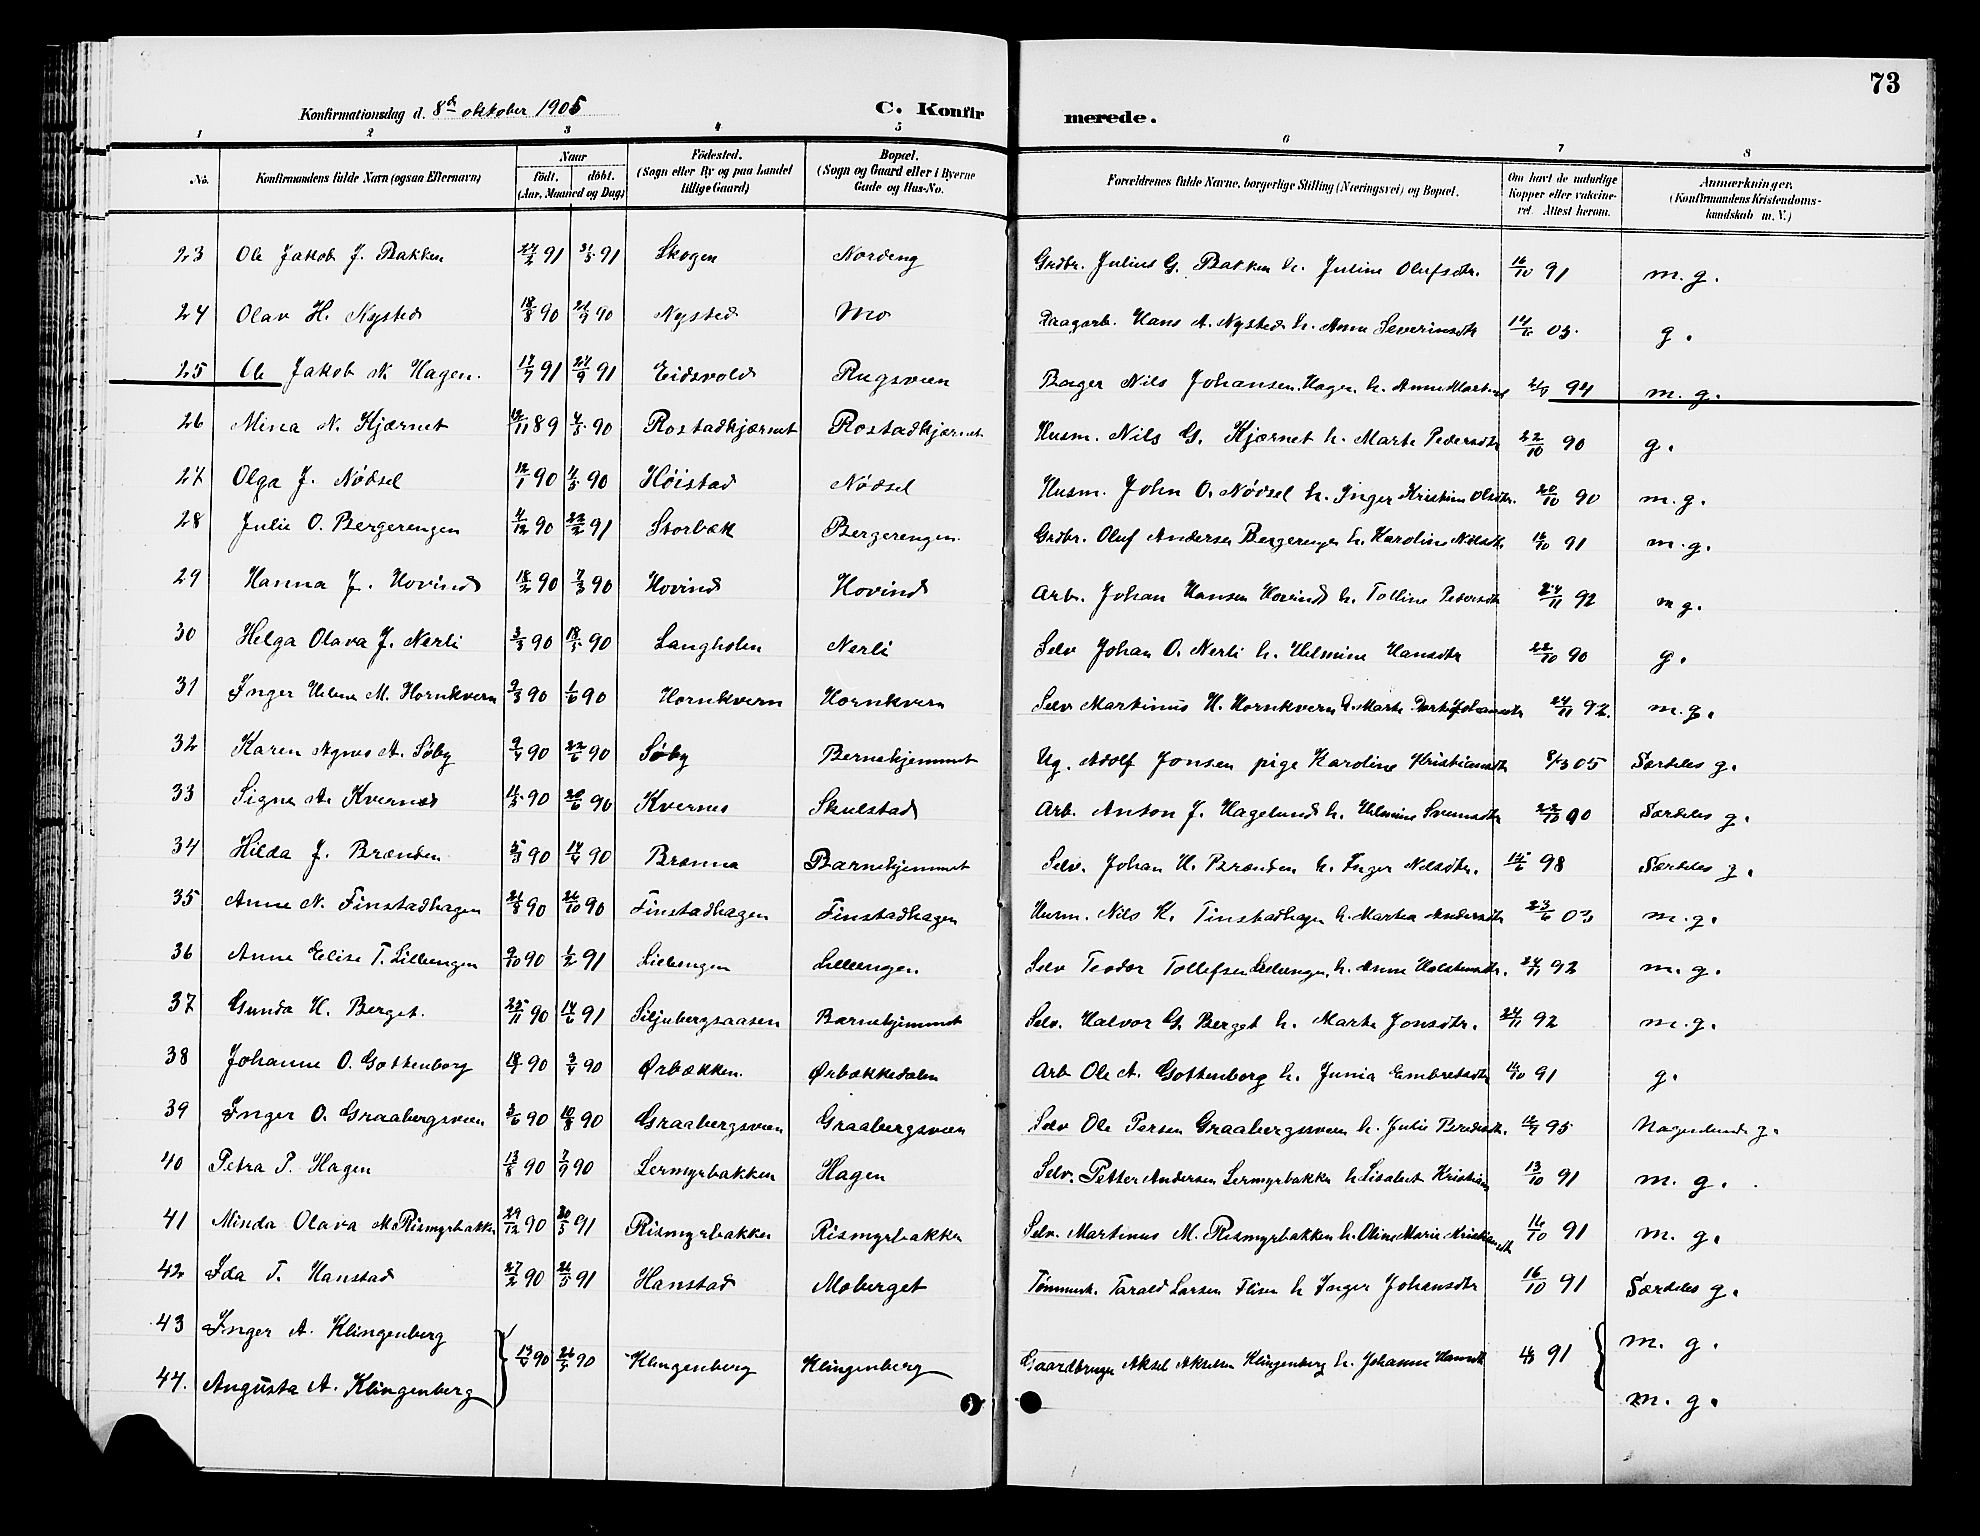 73
Konfirmationsdag d. 8de oktober 1905 C. Konfirmerede.
1 2 3 4 5 6 7 8
No. Konfirmandens fulde Navn (ogsaa Efternavn) Naar født. døbt. (Aar, Maaned og Dag) Fødested. (Sogn eller By og paa Landet tillige Gaard) Bopæl. (Sogn og Gaard eller i Byerne Gade og Hus-No. Forældrenes fulde Navne, borgerlige Stilling (Næringsvei) og Bopæl. Om havt de naturlige Kopper eller vakcineret. Attest herom. Anmærkninger. (Konfirmandens Kristendomskundskab m. V.)
23 Ole Jakob J. Bakken 91 91 Skogen Nordeng Grdbr. Julius G. Bakken h. Juline Olufsdtr. 16/10 91 m. g.
24 Olav H. Nysted 18/8 90 21/9 90 Nysted Mo Hans A. Nysted h. Anne Severinsdtr 03. g.
25 Ole Jakob N. Hagen. 91 27/9 91 Eidsvold Rugsveen Bager Nils Johansen Hagen h. Anne 94 m. g.
26 Mina N. Kjærnet 89 90 Rostadkjærnet Rostadkjærnet Husm. Nils G. Kjærnet h. Marte Pedersdtr 22/10 90 g.
27 Olga J. Nødsel 12/1 90 4/5 90 Høistad Nødsel Husm. John O. Nødsel h. Inger Kristine Olsdtr. 20/10 90 m. g.
28 Julie O. Bergerengen 4/12 90 22/2 91 Storbæk Bergerengen. Grdbr. Oluf Andersen Bergerengen h. Karoline Nilsdtr 16/10 91 m. g.
29 Hanna J. Hovind 18/2 90 7/3 90 Hovind Hovind Arb. Johan Hansen Hovind h. Tolline Pedersdtr 24/11 92 m g.
30 Helga Olava J. Nerli 3/3 90 18/5 90 Langholen Nerli Selv Johan O. Nerli h. Helmine Hansdtr 22/10 90 g.
31 Inger Helene M. Hornkvern 9/3 90 1/6 90 Hornkvern Hornkvern Selv Martinus H. Hornkvern h. Marte Johansdtr 24/11 92. m. g.
32 Karen Agnes A. Søby 9/4 90 22/6 90 Søby Bernehjemmet Ug. Adolf Jonsen pige Karoline Kristiansdtr 8/3 05 Særdeles g.
33 Signe A. Kvernes 11/5 90 20/6 90 Kvernes Skulstad Arb. Anton J. Hagelund h. Helmine Svensdtr 22/10 90 Særdeles g.
34 Hilda J. Brænden 5/3 90 14/4 90 Brænna Barnehjemmet Selv. Johan H. Brænden h. Inger Nilsdtr. 98 Særdeles g.
35 Anne N. Finstadhagen 21/8 90 26/10 90 Finstadhagen Finstadhagen Husm. Nils K. Finstadhagen h. Martea Andersdtr 23/6 03 m. g.
36 Anne Elise T. Lilleengen 9/10 90 1/2 91 Lieengen Lilleengen. Selv Teodor Tollefsen Lilleengen h. Anne Holstensdtr. 24/11 92 m. g.
37 Gunda H. Berget. 25/11 90 14/6 91 Siljubergsaasen Barnehjemmet Selv. Halvor G. Berget h. Marte Jonsdtr. 24/11 92 m. g.
38 Johanne O. Gottenborg 90 3/4 90 Ørbækken. Ørbækkedalen Arb Ole A. Gottenborg h. Junia Embretsdtr 16/10 91 g.
39 Inger O. Graabergsveen 3/6 90 10/8 90 Graabergsveen Graabergsveen Selv Ole Persen Graabergsveen h. Julie 95 Nogenlunde g.
40 Petra P. Hagen 13/8 90 7/9 90 Lermyrbakken Hagen Selv. Petter Andersen Lermyrbakken h Lisabet 13/10 91 m. g.
41 Minda Olava M. Rismyrbakken 29/12 90 30/3 91 Rismyrbakken Rismyrbakken Selv. Martinus M. Rismyrbakken h. Oline Marie Kristiansdtr 16/10 91 m. g.
42 Ida T. Hanstad 27/2 90 26/5 91 Hanstad Moberget Tømmerh. Tarald Larsen Flisen h Inger Johansdtr 16/10 91 Særdeles g.
43 Inger A. Klingenberg m. g.
13/4 90 26/5 90 Klingenberg Klingenberg Gaardbruger Aksel Akselsen Klingenberg h. Johanne Hansdtr 91
44. Augusta A. Klingenberg m. g.